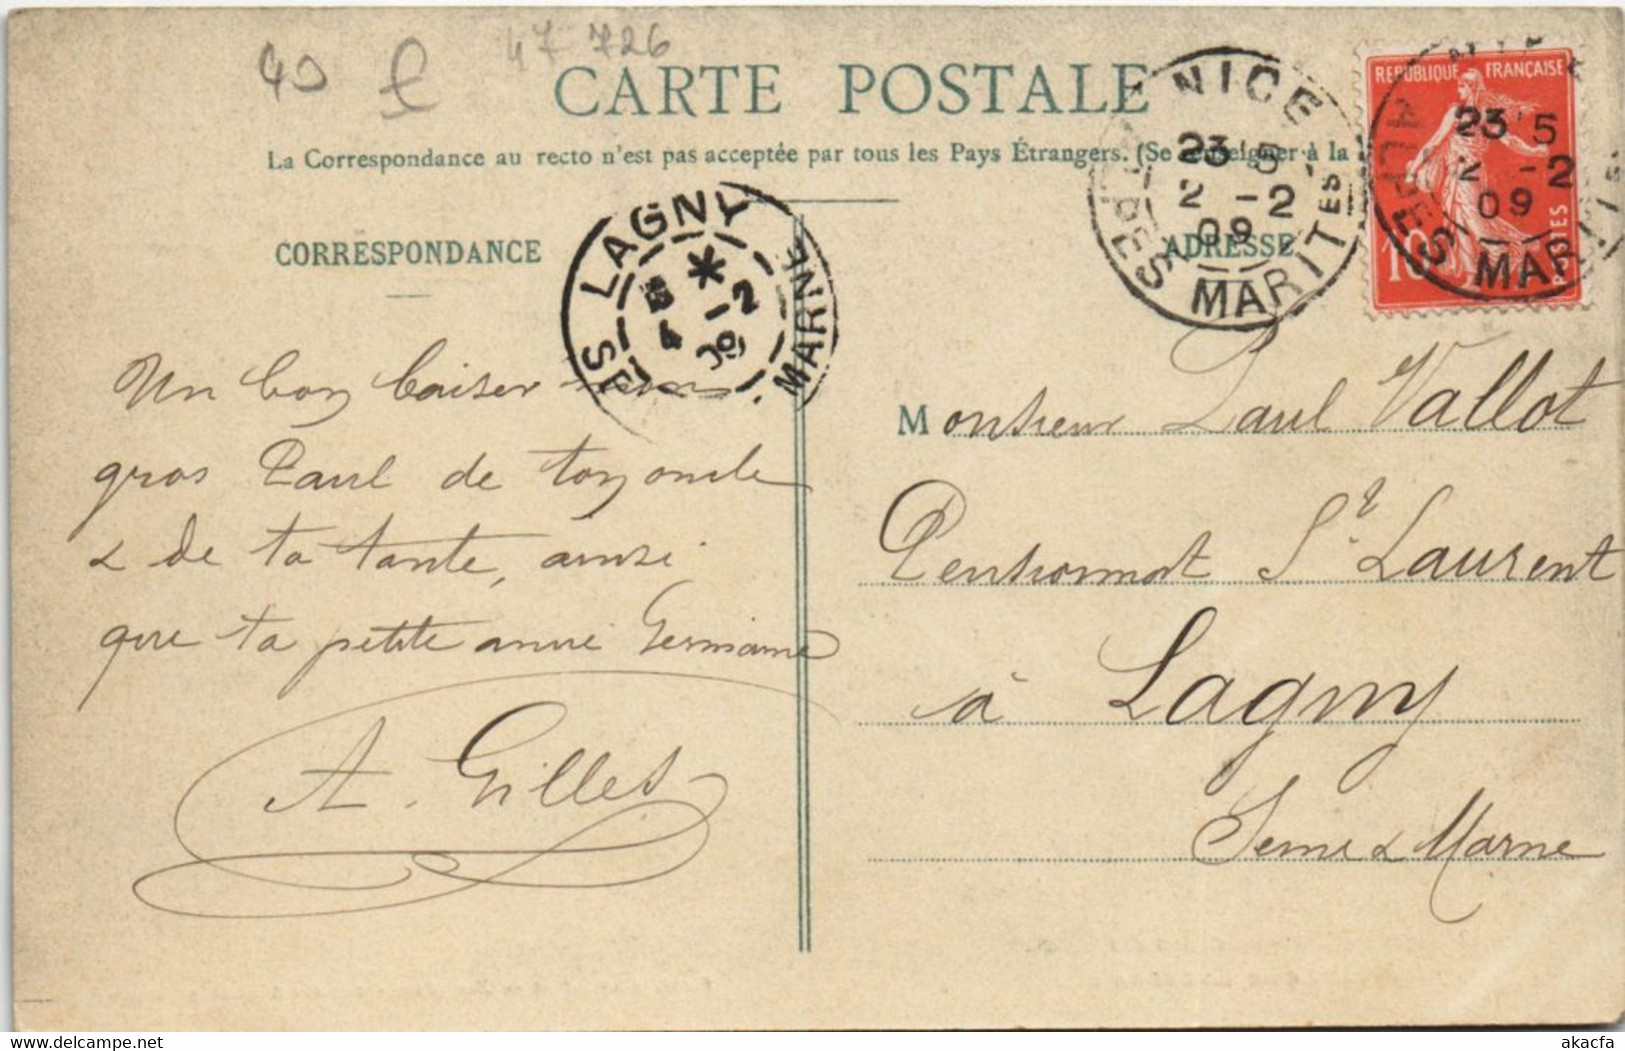 40
47 726
CARTE POSTALE
La Correspondance au recto n'est pas acceptée par tous les Pays Étrangers. (Se renseigner à la
CORRESPONDANCE
ADRESSE
Un bon baiser mon
gros Paul de ton oncle
& de ta tante, ainsi
que ta petite amie Germaine
A. Gilles
Monsieur Paul Vallot
Pensionnat St Laurent
à Lagny
Seine & Marne
LAGNY
MARNE
4 - 2
09
NICE
23 5
2 - 2
09
ALPES MARITES
REPUBLIQUE FRANÇAISE
10
POSTES
23 5
2 - 2
09
ALPES MARIT
delcampe.net
akacfa